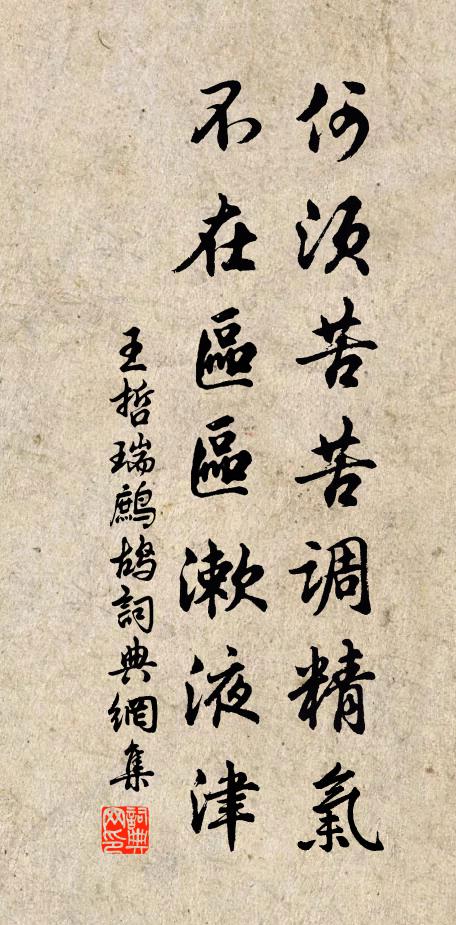 何須苦苦調精氣
不在區區漱液津
王哲瑞鷓鴣詞典網集
詞典网印